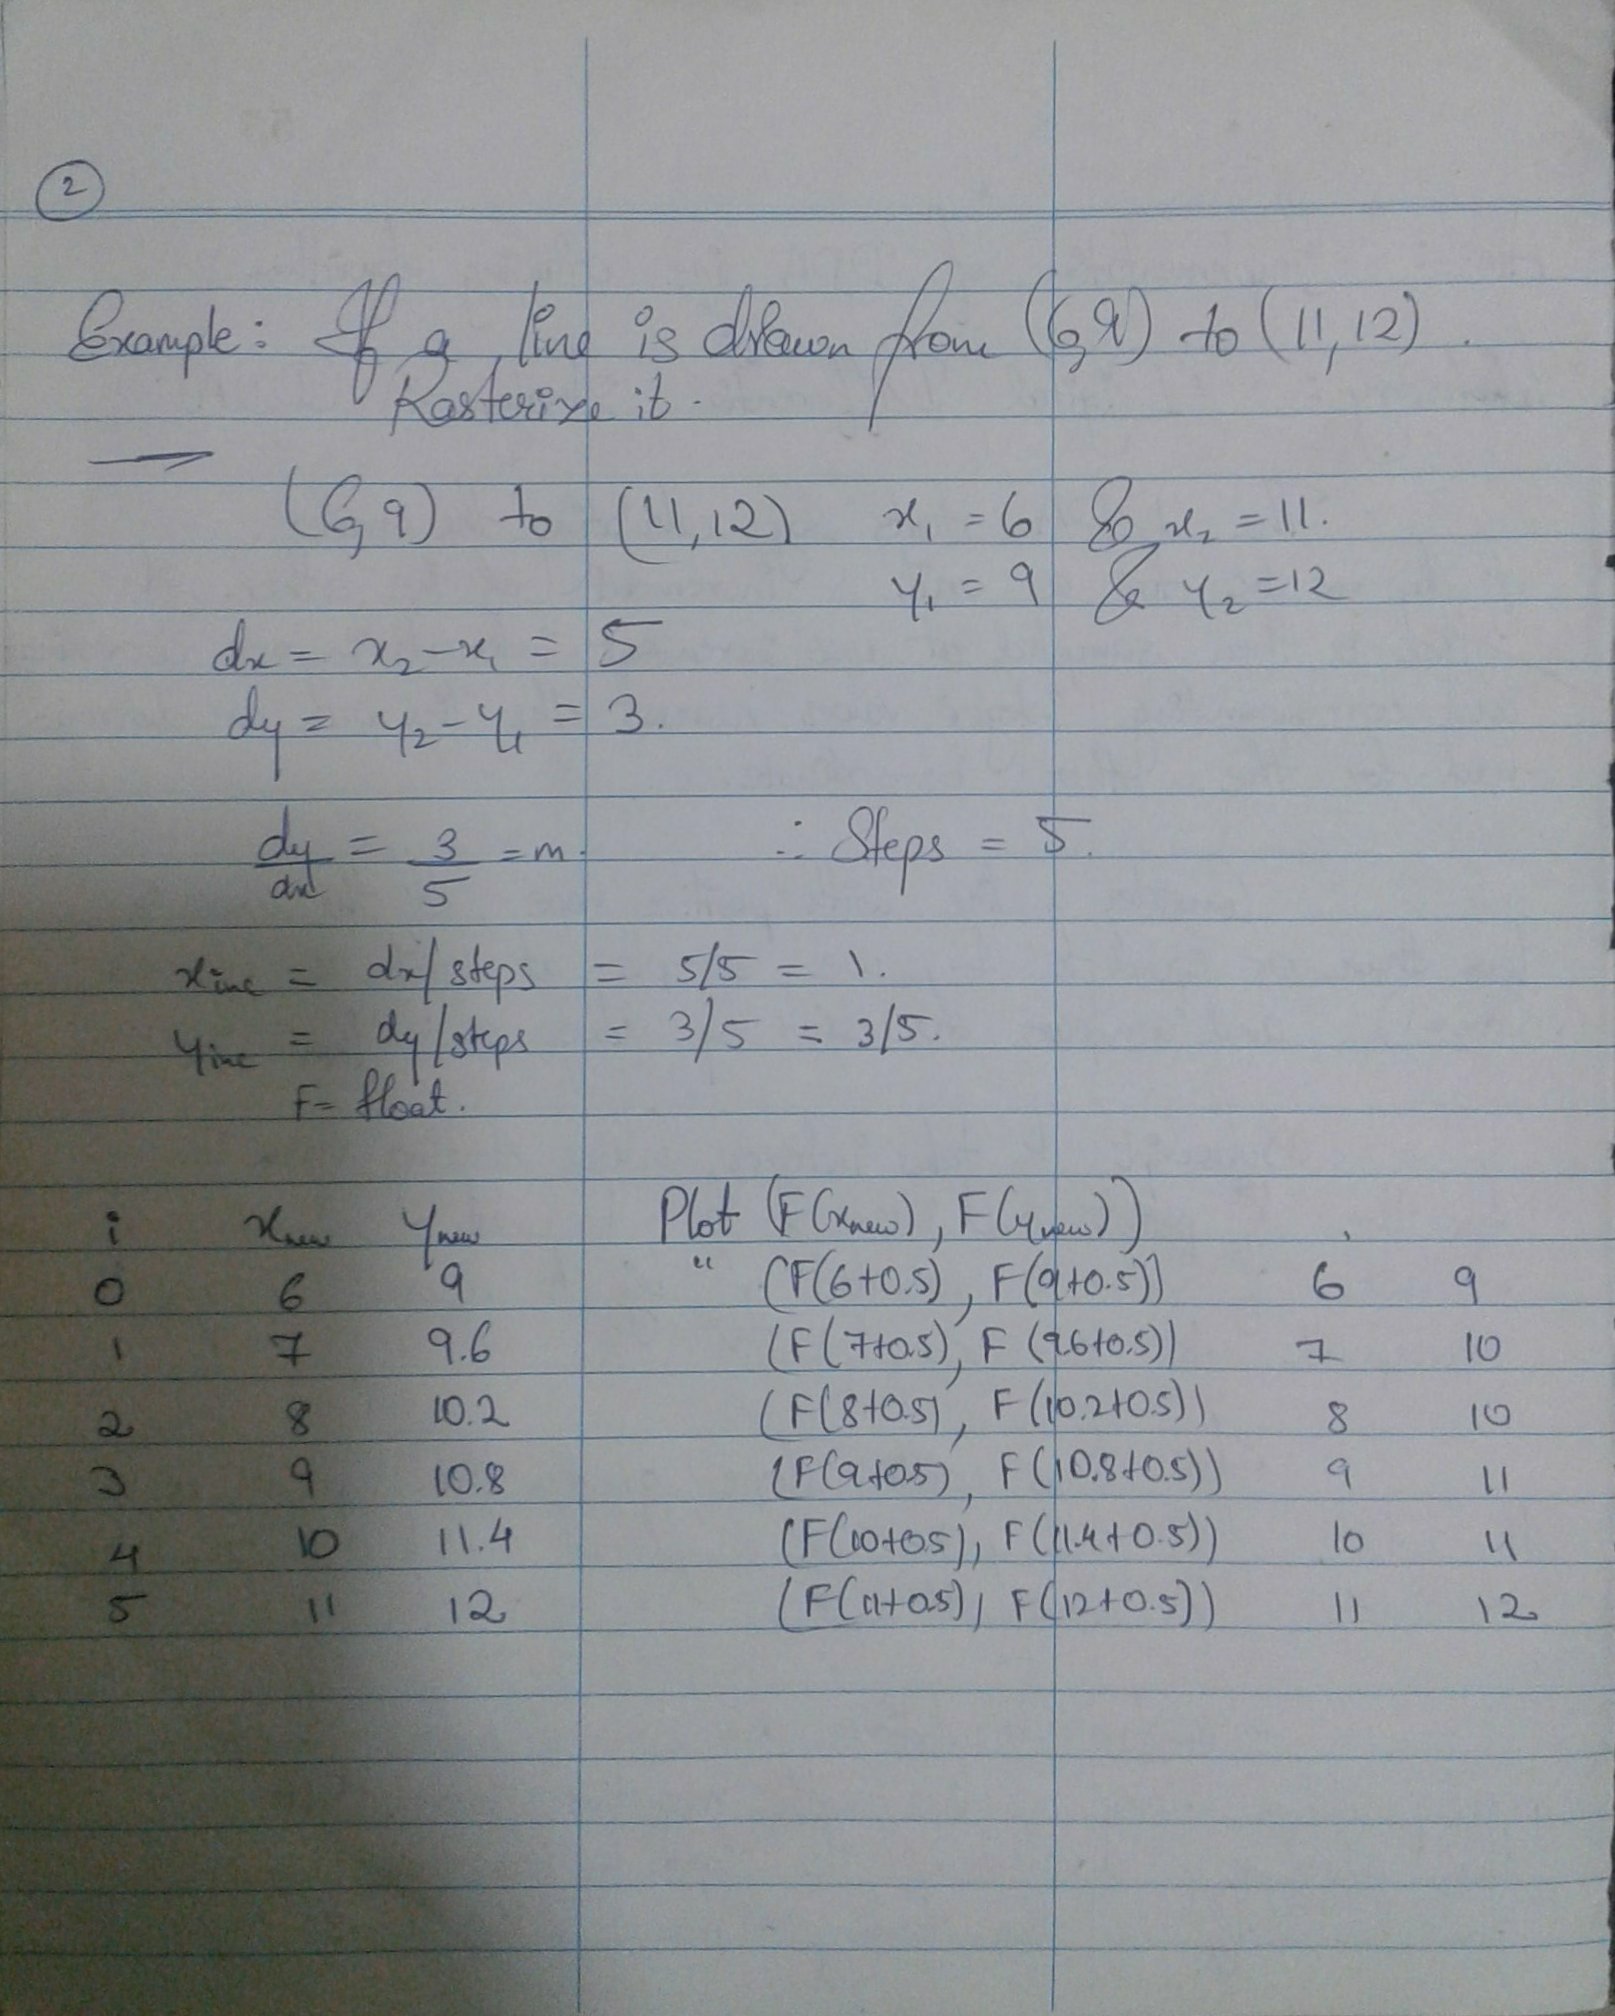 2
Example: If a line is drawn from (6,9) to (11,12).
Rasterize it.
(6,9) to (11,12) x₁ = 6 & x₂ = 11.
y₁ = 9 & y₂ = 12
dx = x₂-x₁ = 5
dy = y₂-y₁ = 3.
dy/dx = 3/5 = m. ∴ Steps = 5.
xinc = dx/steps = 5/5 = 1.
yinc = dy/steps = 3/5 = 3/5.
F= float.
i xnew ynew Plot (F(xnew), F(ynew))
0 6 9 " (F(6+0.5), F(9+0.5)) 6 9
1 7 9.6 (F(7+0.5), F(9.6+0.5)) 7 10
2 8 10.2 (F(8+0.5), F(10.2+0.5)) 8 10
3 9 10.8 (F(9+0.5), F(10.8+0.5)) 9 11
4 10 11.4 (F(10+0.5), F(11.4+0.5)) 10 11
5 11 12 (F(11+0.5), F(12+0.5)) 11 12